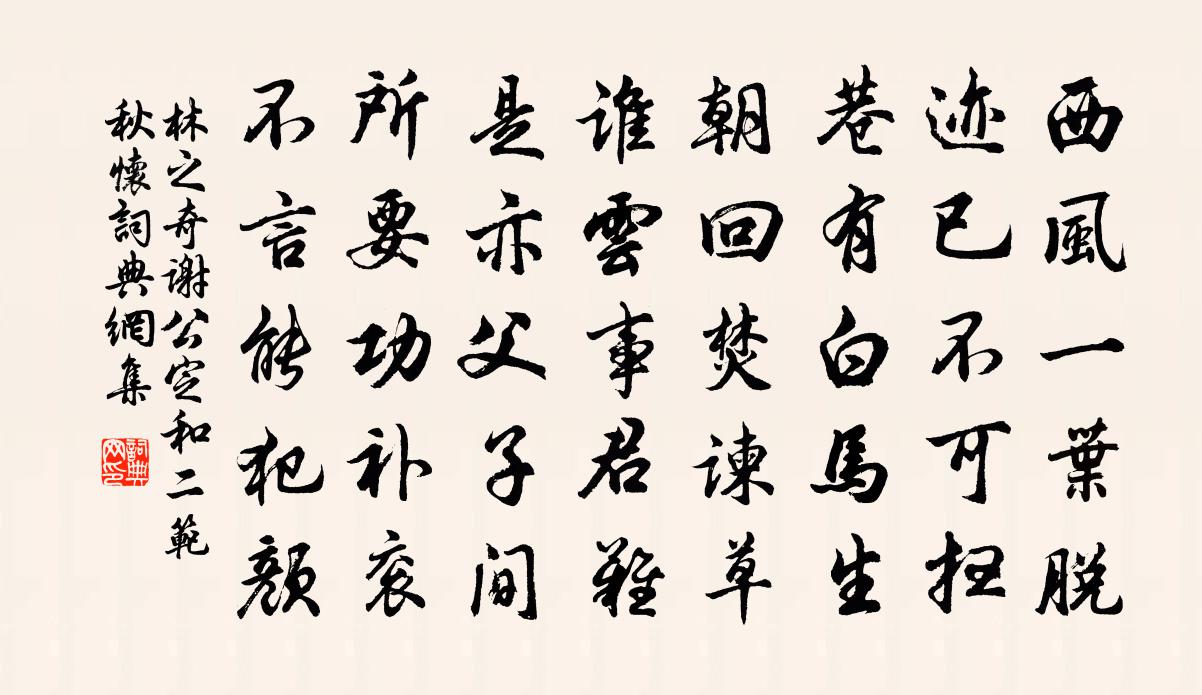 西風一葉脱
迹已不可扫
巷有白馬生
朝回焚諫草
谁雲事君難
是亦父子间
所要功补衮
不言能犯顔
林之奇谢公定和二範
秋懷詞典網集
詞典網印